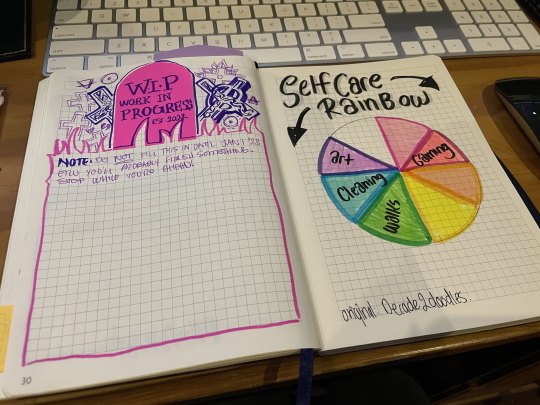 W.I.P
WORK IN
PROGRESS
EST. 2021
NOTE: DO NOT FILL THIS IN UNTIL JAN 1 '23
BTW YOU'LL PROBABLY FINISH SOMETHING.
STOP WHILE YOU'RE AHEAD!
30
Self Care
RainBow
art
Gaming
Cleaning
Walks
original: Decade2doodles